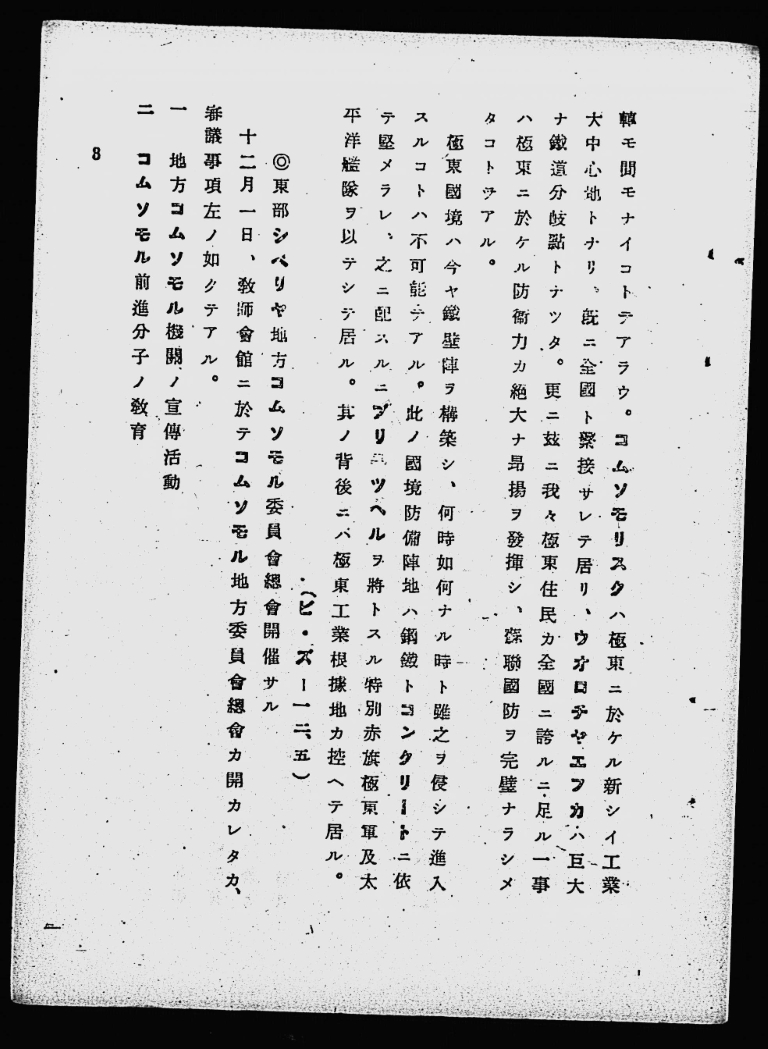 轄モ間モナイコトテアラウ。コムソモリスクハ極東ニ於ケル新シイ工業
大中心地トナリ、既ニ全國ト緊接サレテ居リ、ウオロチヤエフカハ巨大
ナ鐵道分岐點トナツタ。更ニ茲ニ我々極東住民カ全國ニ誇ルニ足ル一事
ハ極東ニ於ケル防衞力カ絕大ナ昂揚ヲ發揮シ、蘇聯國防ヲ完璧ナラシメ
タコトヲアル。
極東國境ハ今ヤ鐵壁陣ヲ構築シ、何時如何ナル時ト雖之ヲ侵シテ進入
スルコトハ不可能テアル。此ノ國境防備陣地ハ鋼鐵トコンクリートニ依
テ堅メラレ、之ニ配スルニブリユツヘルヲ將トスル特別赤旗極東軍及太
平洋艦隊ヲ以テシテ居ル。其ノ背後ニハ極東工業根據地カ控ヘテ居ル。
(ビ・ズー一二、五)
◎東部シベリヤ地方コムソモル委員會總會開催サル
十二月一日、敎師會館ニ於テコムソモル地方委員會總會カ開カレタカ、
審議事項左ノ如クテアル。
一 地方コムソモル機關ノ宣傳活動
二 コムソモル前進分子ノ敎育
8